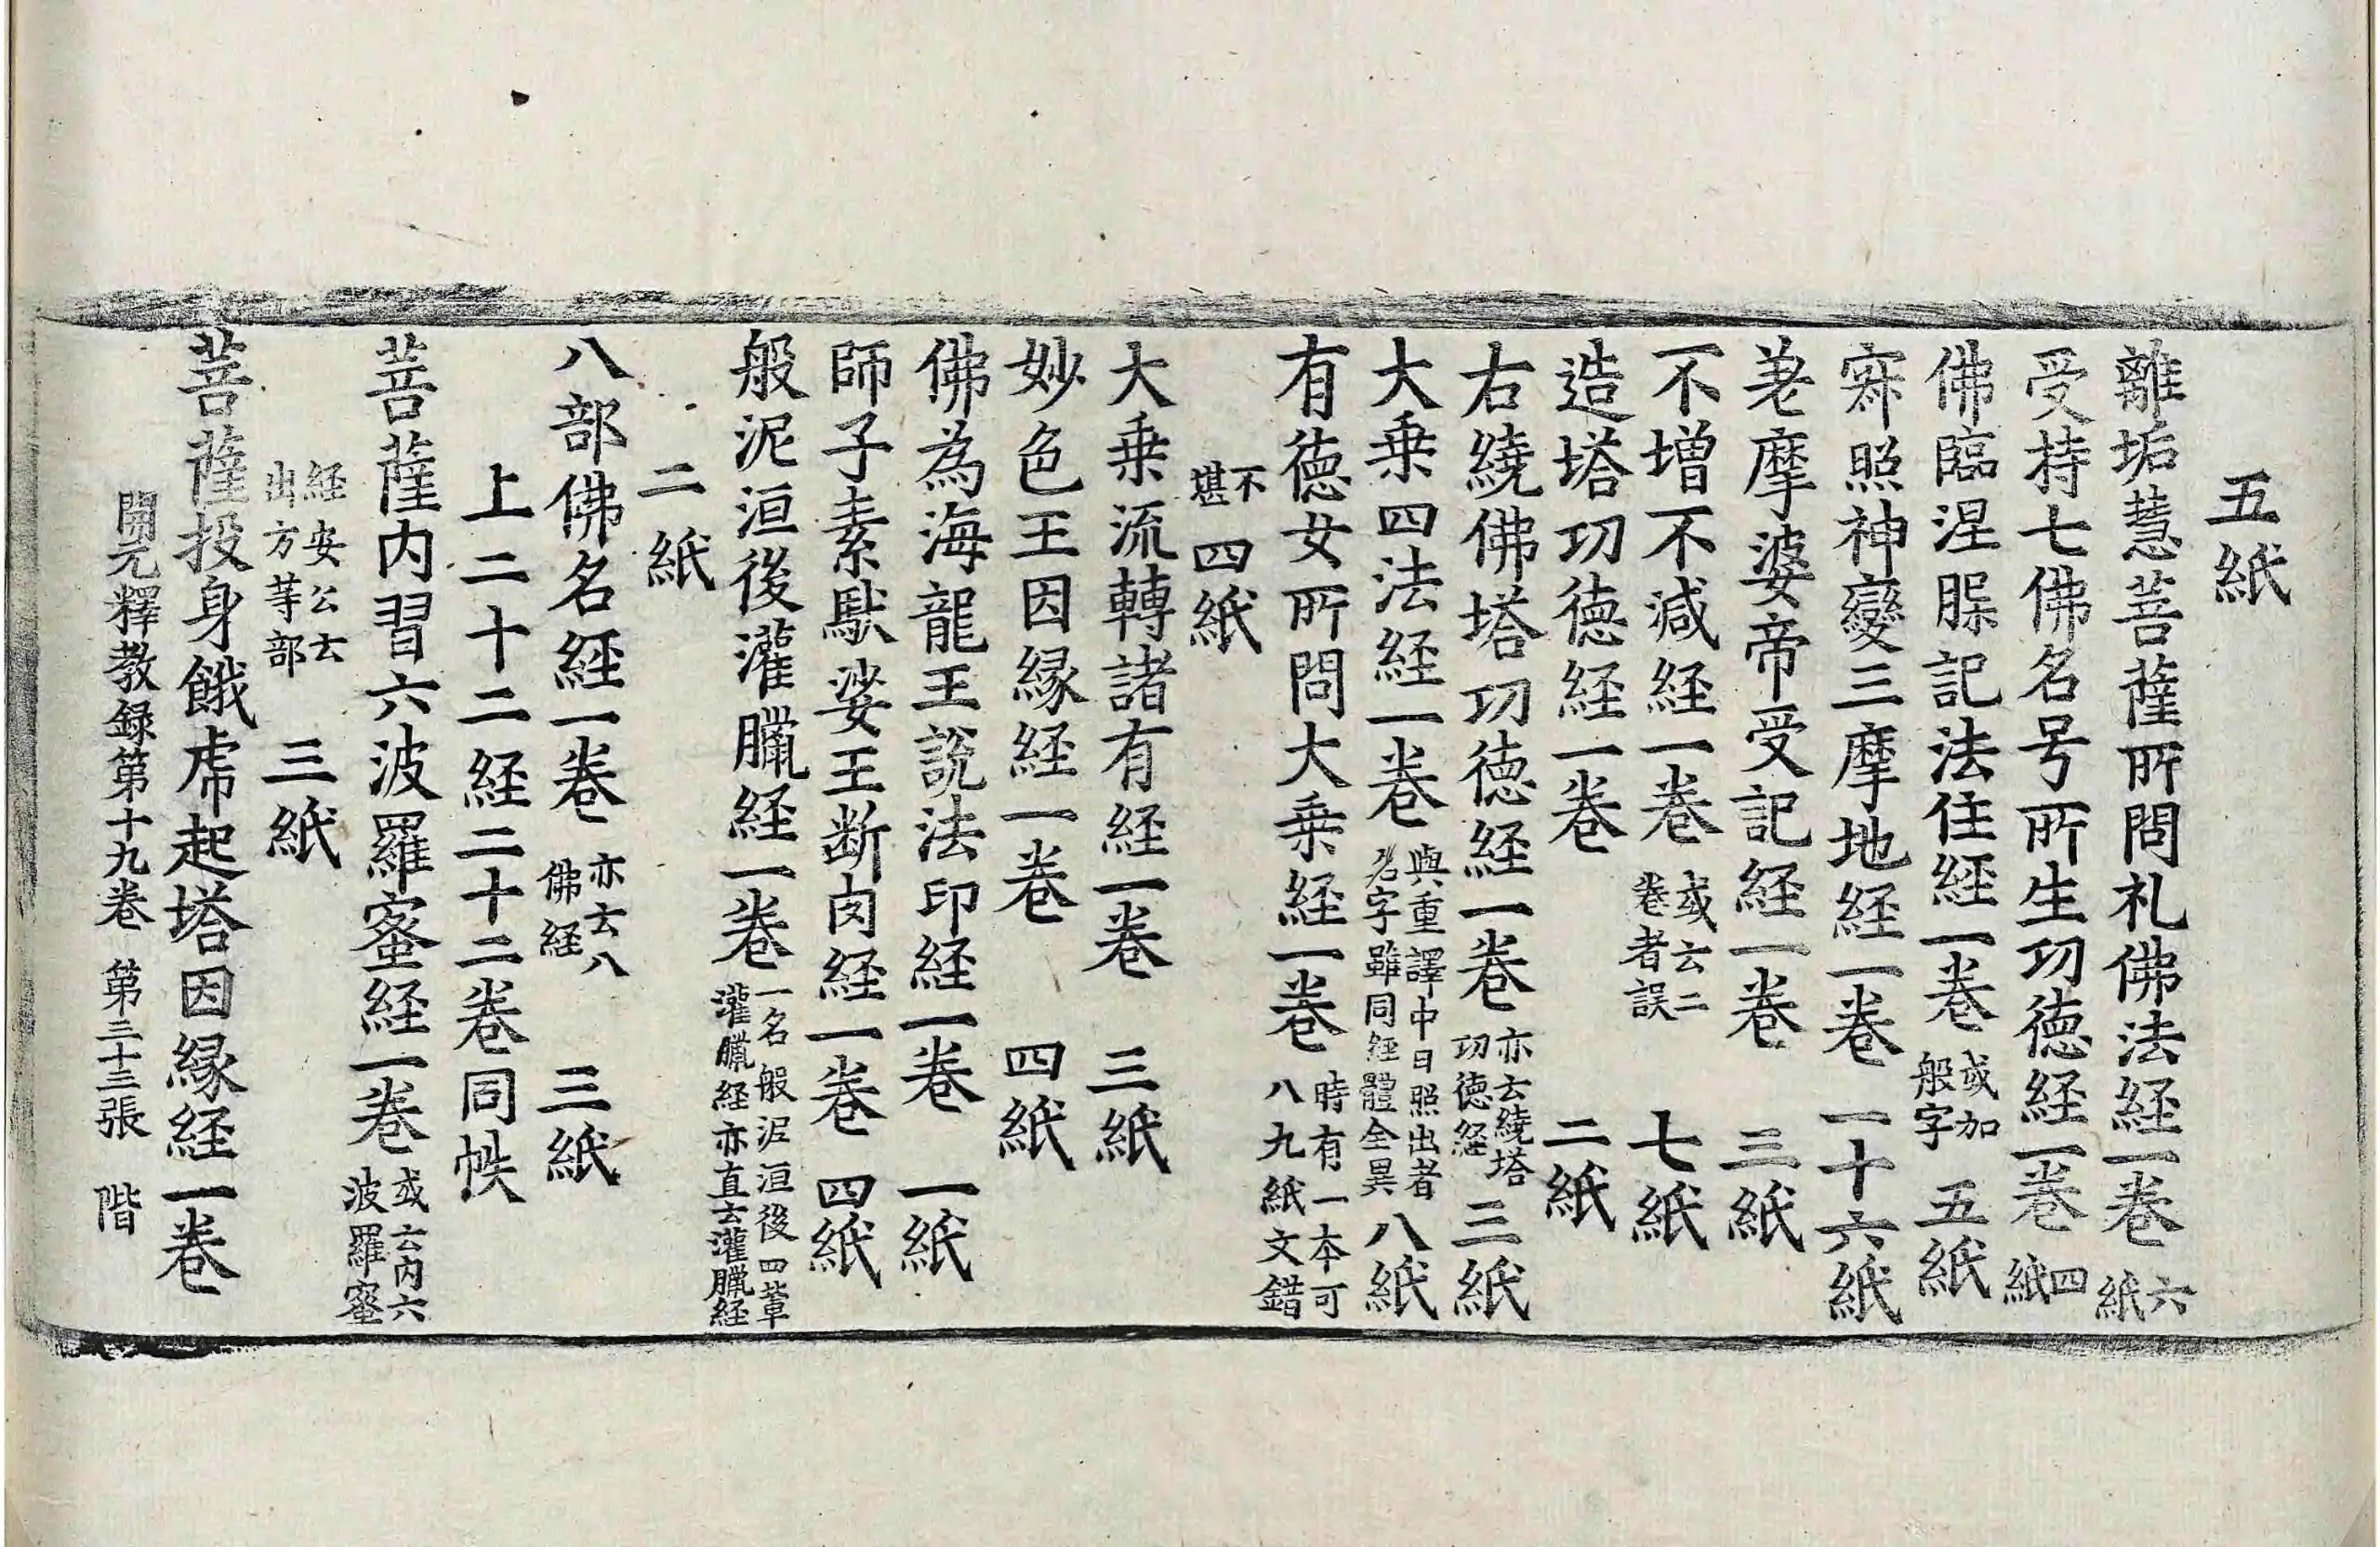 五紙
離垢慧菩薩所問礼佛法経一巻六紙
受持七佛名号所生功徳経一巻四紙
佛臨涅槃記法住経一巻或加般字五紙
寂照神變三摩地経一巻一十六紙
差摩婆帝受記経一巻三紙
不増不減経一巻或云二卷者誤七紙
造塔功徳経一巻二紙
右繞佛塔功徳経一巻亦云繞塔功徳経三紙
大乗四法経一巻與重譯中日照出者名字雖同経體全異八紙
有徳女所問大乗経一巻時有一本可八九紙文錯
不堪四紙
大乗流轉諸有経一巻三紙
妙色王因縁経一巻四紙
佛為海龍王説法印経一巻一紙
師子素馱娑王断肉経一巻四紙
般泥洹後灌臘経一巻一名般泥洹後四輩灌臘経亦直云灌臘経
二紙
八部佛名経一巻亦云八佛経三紙
上二十二経二十二巻同帙
菩薩内習六波羅蜜経一巻或云内六波羅蜜
経安公云出方等部三紙
菩薩投身餓虎起塔因縁経一巻
開元釋教録第十九巻 第三十三張 階